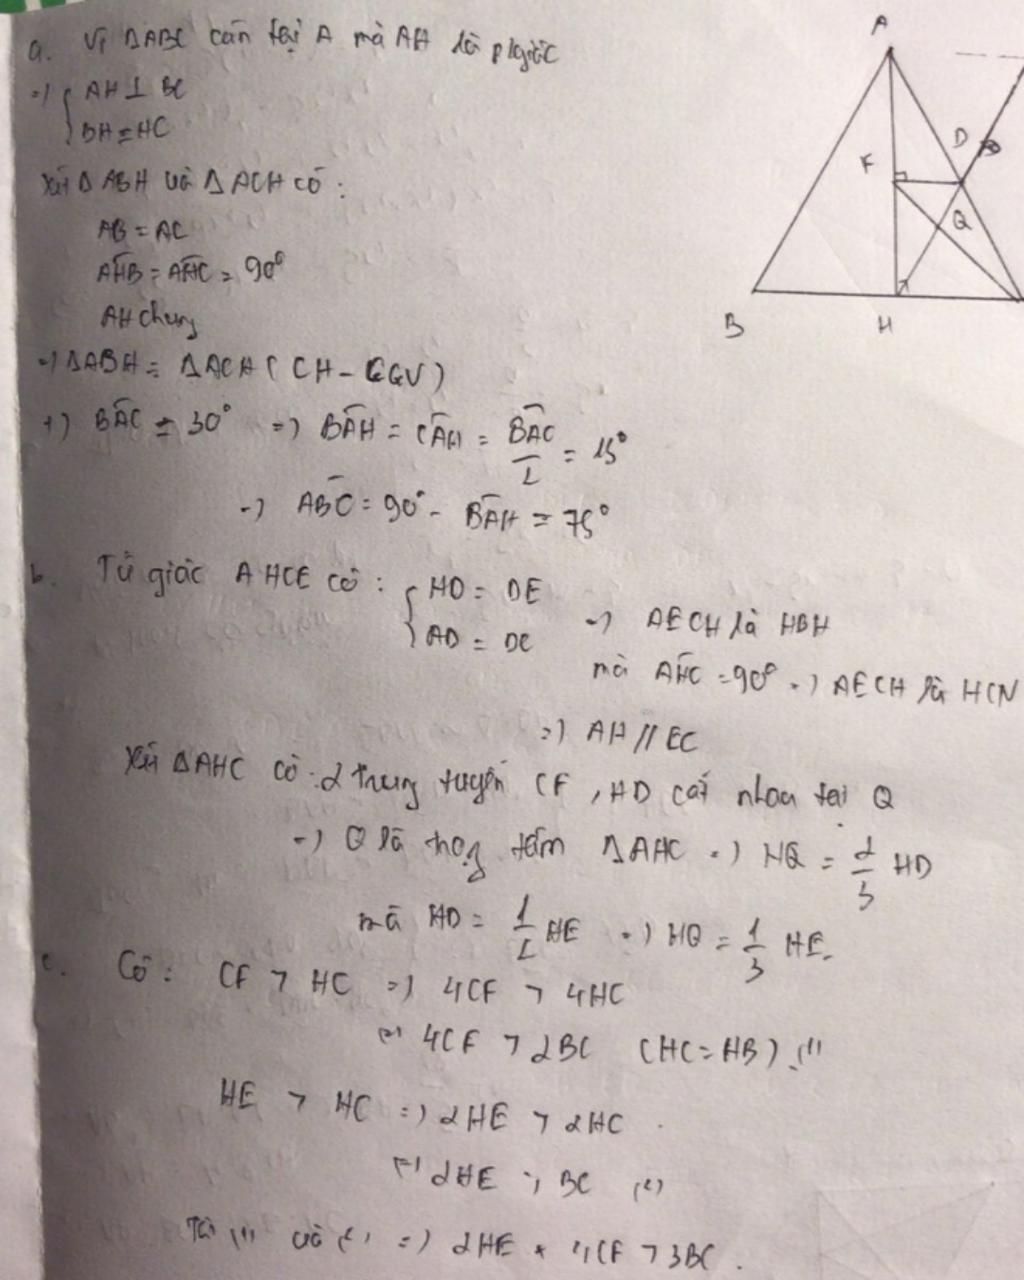 a. Vì ΔABC cân tại A mà AH là p/giác
=> { AH ⊥ BC
BH = HC
Xét ΔABH và ΔACH có:
AB = AC
AHB = AHC = 90°
AH chung
=> ΔABH = ΔACH (CH - CGV)
+) BAC = 30° => BAH = CAH = BAC/2 = 15°
=> ABC = 90° - BAH = 75°
b. Tứ giác AHCE có: { HD = DE
AD = DC
=> AECH là HBH
mà AHC = 90° => AECH là HCN
=> AH // EC
Xét ΔAHC có: 2 trung tuyến CF, HD cắt nhau tại Q
=> Q là trọng tâm ΔAHC => HQ = 2/3 HD
mà HD = 1/2 HE => HQ = 1/3 HE.
c. Có: CF > HC => 4CF > 4HC
<=> 4CF > 2BC (HC = HB) (1)
HE > HC => 2HE > 2HC
<=> 2HE > BC (2)
Từ (1) và (2) => 2HE + 4CF > 3BC.
A
F
D
Q
B
H